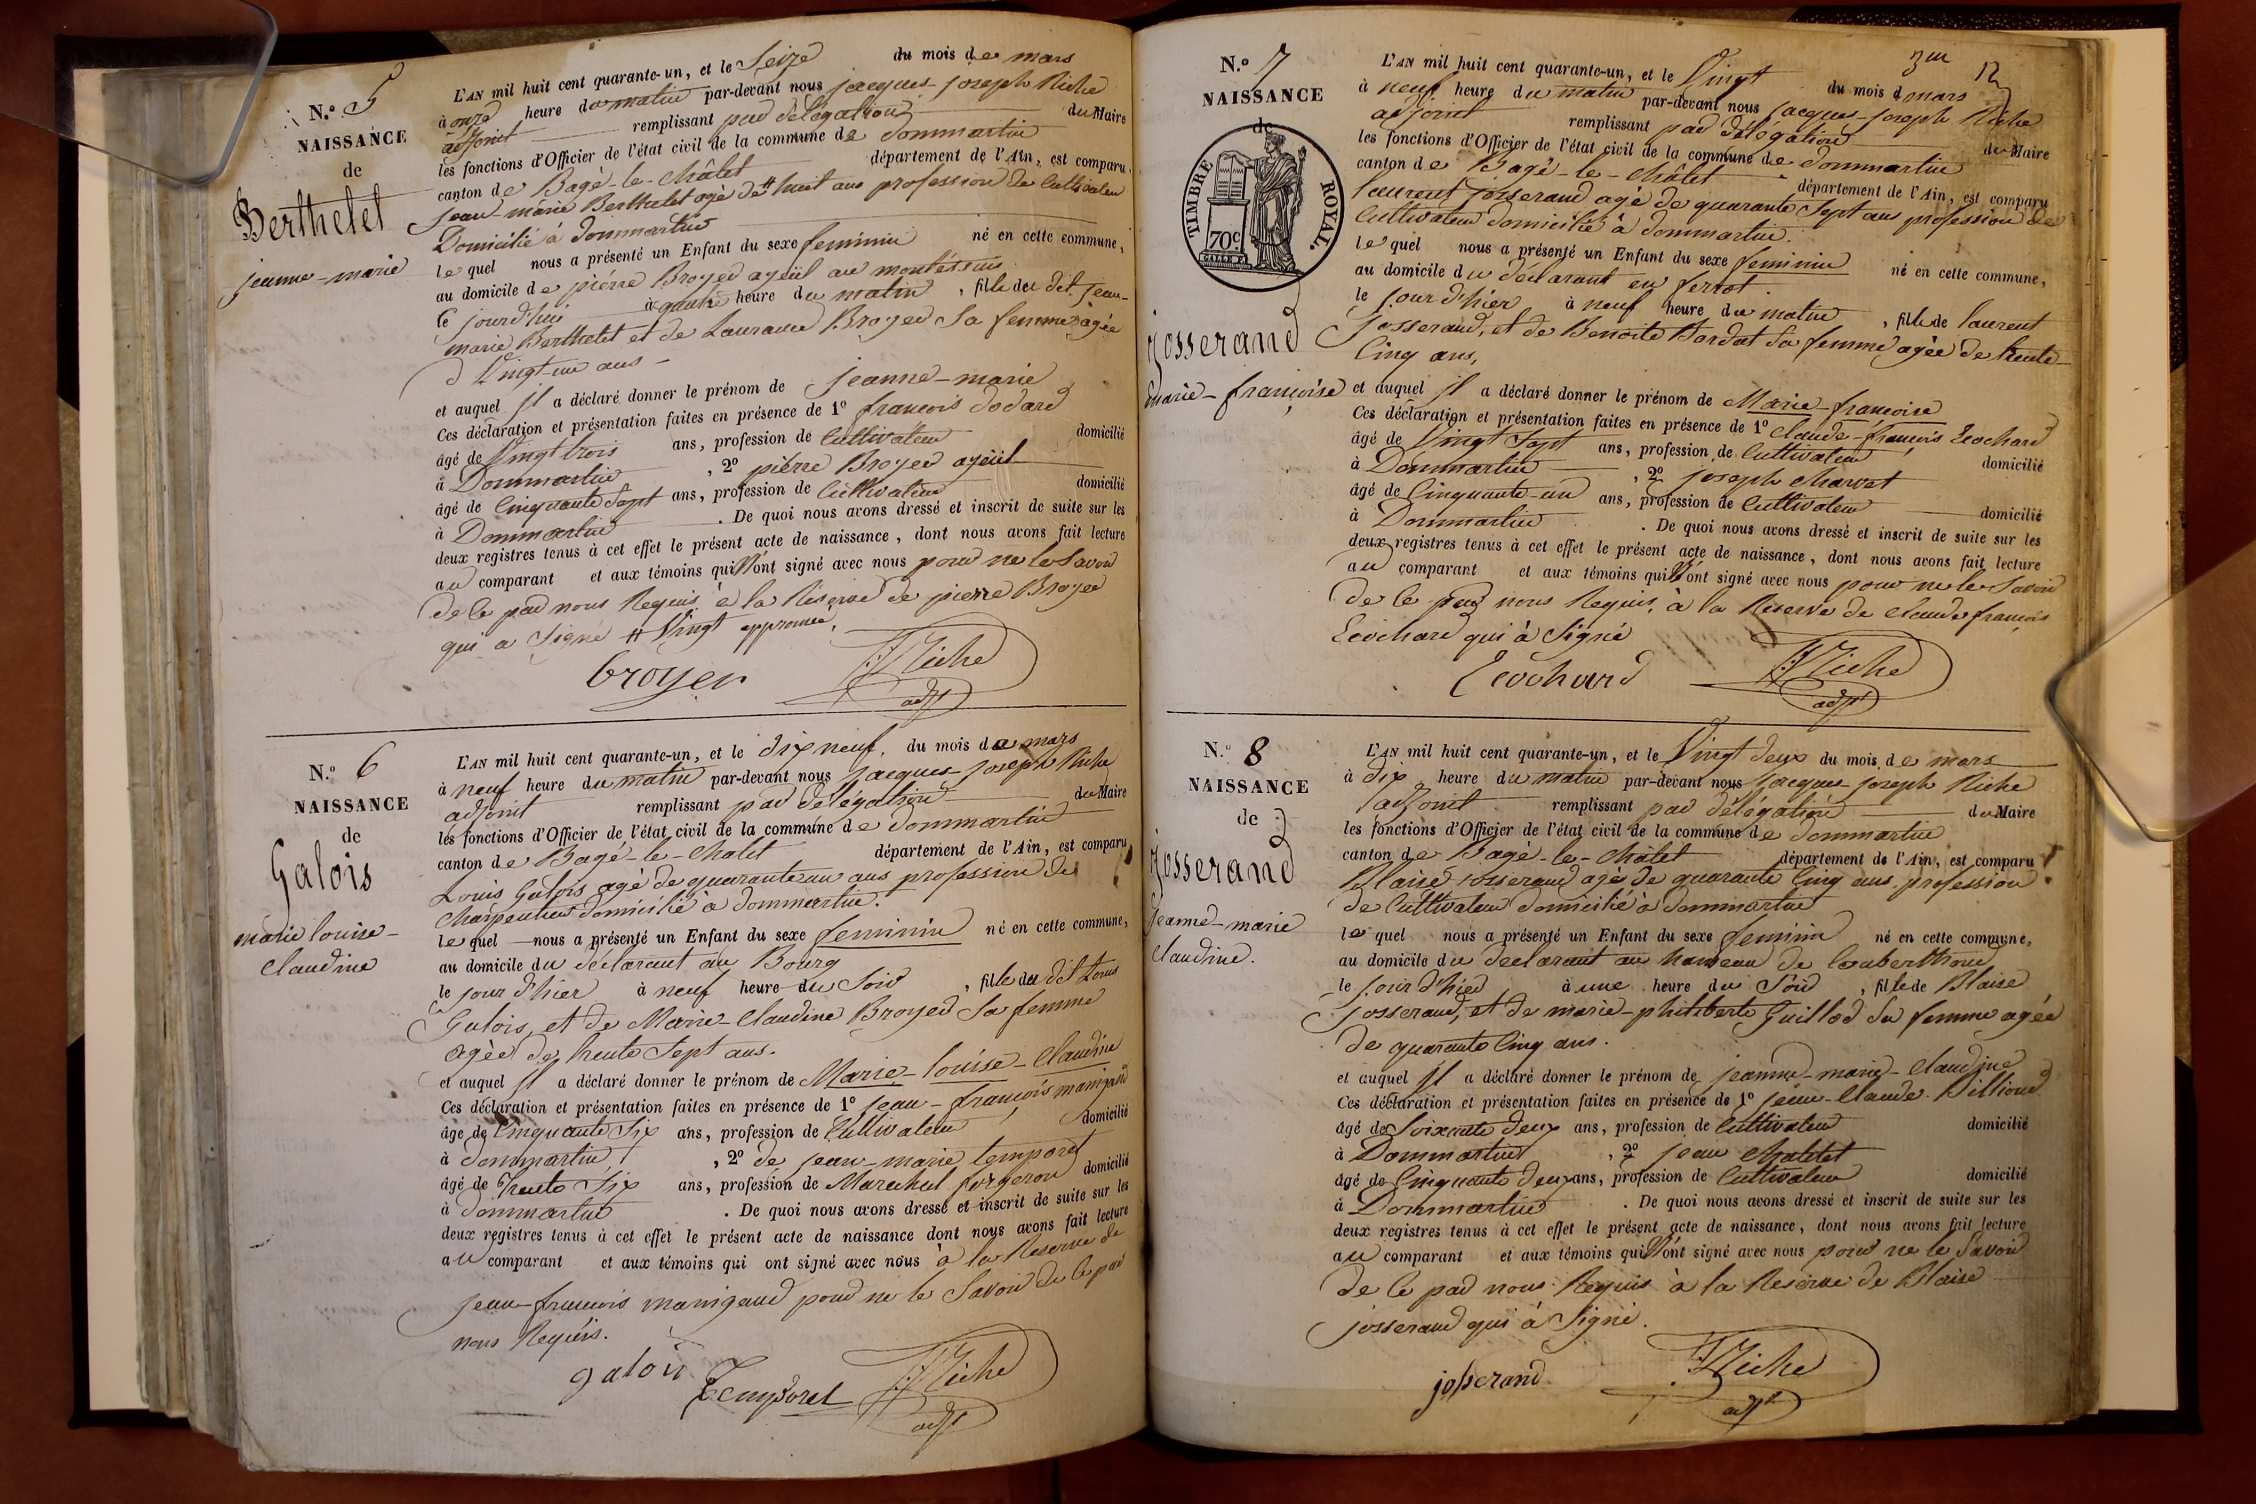 N.º 5
NAISSANCE
de
Berthelet
jeanne-marie
L'AN mil huit cent quarante-un, et le Seize du mois de mars
à onze heure du matin par-devant nous jacques-joseph Riche
adjoint remplissant par délégation du Maire
les fonctions d'Officier de l'état civil de la commune de Dommartin
canton de Bagé-le-Châtel département de l'Ain, est comparu
jean-marie Berthelet agé de # huit ans profession de Cultivateur
Domicilié à Dommartin
lequel nous a présenté un Enfant du sexe feminin né en cette commune,
au domicile de pierre Broyer ayeül au montessuis
le jourd'hui à quatre heure du matin, fille du dit jean-
marie Berthelet et de Laurance Broyer Sa femme agée
d Vingt-un ans
et auquel il a déclaré donner le prénom de jeanne-marie
Ces déclaration et présentation faites en présence de 1º francois dodard
âgé de Vingt trois ans, profession de Cultivateur domicilié
à Dommartin, 2º pierre Broyer ayeül
âgé de Cinquante Sept ans, profession de Cultivateur domicilié
à Dommartin. De quoi nous avons dressé et inscrit de suite sur les
deux registres tenus à cet effet le présent acte de naissance, dont nous avons fait lecture
au comparant et aux témoins qui N'ont signé avec nous pour ne le Savoir
de ce par nous Requis à la Réserve de pierre Broyer
qui a Signé # Vingt approuvé
broyer J.J. Riche
adjt
N.º 6
NAISSANCE
de
Galois
marie louise-
Claudine
L'AN mil huit cent quarante-un, et le dix neuf, du mois de mars
à neuf heure du matin par-devant nous jacques-joseph Riche
adjoint remplissant par délégation du Maire
les fonctions d'Officier de l'état civil de la commune de Dommartin
canton de Bagé-le-Chatel département de l'Ain, est comparu
Louis Galois agé de quarante un ans profession de
Charpentier domicilié à dommartin.
lequel nous a présenté un Enfant du sexe feminin né en cette commune,
au domicile du déclarant au Bourg
le jour d'hier à neuf heure du Soir, fille du dit Louis
Galois, et de Marie-Claudine Broyer Sa femme
agée de trente Sept ans.
et auquel il a déclaré donner le prénom de Marie-louise-Claudine
Ces déclaration et présentation faites en présence de 1º jean-françois manigand
âgé de Cinquante Six ans, profession de Cultivateur domicilié
à dommartin, 2º de jean-marie temporel
âgé de Trente Six ans, profession de Marechal forgeron domicilié
à dommartin. De quoi nous avons dressé et inscrit de suite sur les
deux registres tenus à cet effet le présent acte de naissance dont nous avons fait lecture
au comparant et aux témoins qui ont signé avec nous à la Réserve de
jean-francois manigand pour ne le Savoir de ce par
nous Requis.
galois Temporel J.J. Riche
adjt
3me 12
N.º 7
NAISSANCE
de
TIMBRE ROYAL.
70c
josserand
Marie-françoise
L'AN mil huit cent quarante-un, et le Vingt du mois d mars
à neuf heure du matin par-devant nous jacques-joseph Riche
adjoint remplissant par délégation du Maire
les fonctions d'Officier de l'état civil de la commune de Dommartin
canton de Bagé-le-Châtel département de l'Ain, est comparu
laurent josserand agé de quarante Sept ans profession de
Cultivateur domicilié à dommartin.
lequel nous a présenté un Enfant du sexe feminin né en cette commune,
au domicile du déclarant en ferrot.
le jour d'hier à neuf heure du matin, fille de laurent
josserand, et de Benoite Bardat Sa femme agée de trente
Cinq ans,
et auquel il a déclaré donner le prénom de Marie-françoise
Ces déclaration et présentation faites en présence de 1º Claude-françois Leochard
âgé de Vingt Sept ans, profession de Cultivateur domicilié
à Dommartin, 2º joseph Charvet
âgé de Cinquante-un ans, profession de Cultivateur domicilié
à Dommartin. De quoi nous avons dressé et inscrit de suite sur les
deux registres tenus à cet effet le présent acte de naissance, dont nous avons fait lecture
au comparant et aux témoins qui N'ont signé avec nous pour ne le Savoir
de ce par nous Requis, à la Réserve de Claude françois
Leochard qui à Signé
Leochard J.J. Riche
adjt
N.º 8
NAISSANCE
de
josserand
jeanne-marie
Claudine.
L'AN mil huit cent quarante-un, et le Vingt deux du mois de mars
à dix heure du matin par-devant nous jacques-joseph Riche
adjoint remplissant par délégation du Maire
les fonctions d'Officier de l'état civil de la commune de Dommartin
canton de Bagé-le-Châtel département de l'Ain, est comparu
Blaise josserand agé de quarante Cinq ans profession
de Cultivateur domicilié à dommartin
lequel nous a présenté un Enfant du sexe feminin né en cette commune,
au domicile du déclarant au hameau de Louberthoud
le jour d'hier à une heure du Soir, fille de Blaise
josserand, et de marie-philiberte Guillod Sa femme agée
de quarante Cinq ans.
et auquel il a déclaré donner le prénom de jeanne-marie-Claudine
Ces déclaration et présentation faites en présence de 1º jean-Claude Billioud
âgé de Soixante deux ans, profession de Cultivateur domicilié
à Dommartin, 2º jean Chatelet
âgé de Cinquante deux ans, profession de Cultivateur domicilié
à Dommartin. De quoi nous avons dressé et inscrit de suite sur les
deux registres tenus à cet effet le présent acte de naissance, dont nous avons fait lecture
au comparant et aux témoins qui N'ont signé avec nous pour ne le Savoir
de ce par nous Requis à la Réserve de Blaise
josserand qui à Signé.
josserand J.J. Riche
adjt